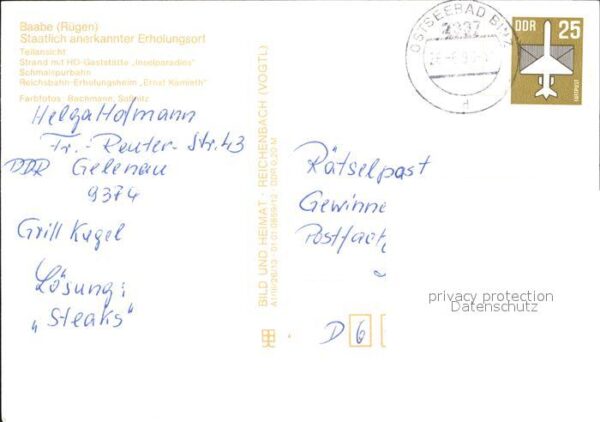 Baabe (Rügen)
Staatlich anerkannter Erholungsort
Teilansicht
Strand mit HO-Gaststätte „Inselparadies"
Schmalspurbahn
Reichsbahn-Erholungsheim „Ernst Kamieth"
Farbfotos: Bachmann, Saßnitz
Helga Hofmann
Fr.-Reuter-Str. 43
DDR Gelenau
9374
Grill Kugel
Lösung:
„Steaks"
BILD UND HEIMAT · REICHENBACH (VOGTL)
A1/III/26/13 01 01 0859/12 DDR 0,20 M
OSTSEEBAD BINZ
2337
DDR 25
LUFTPOST
Rätselpost
Gewinne
Postfach
D 6
privacy protection
Datenschutz